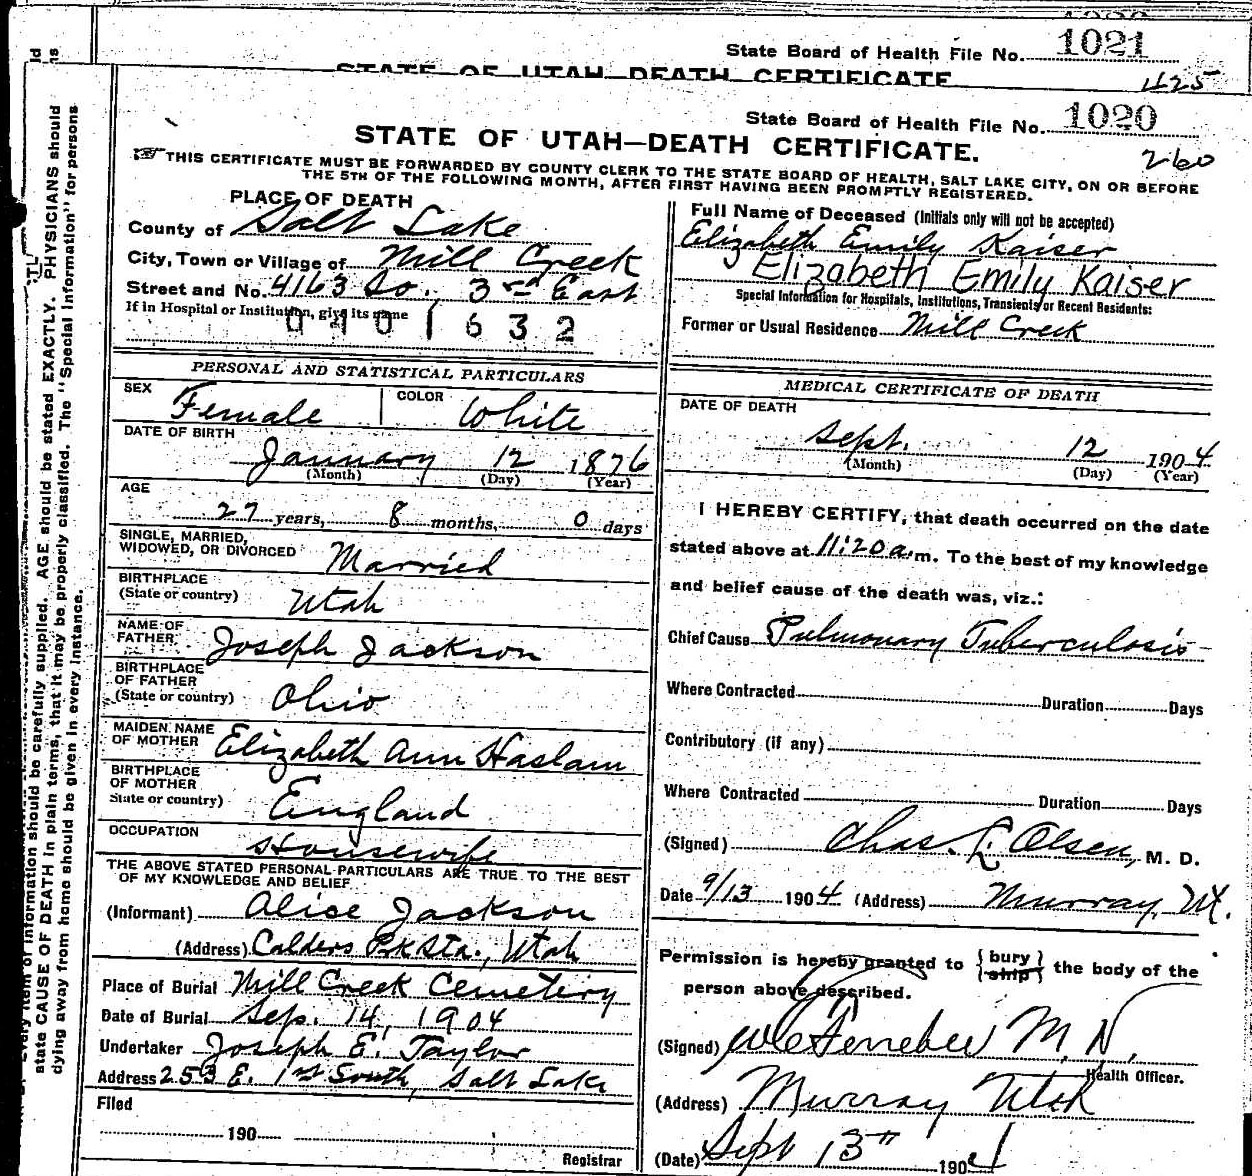 State Board of Health File No. 1021
STATE OF UTAH—DEATH CERTIFICATE
425
State Board of Health File No. 1020
STATE OF UTAH—DEATH CERTIFICATE.
260
THIS CERTIFICATE MUST BE FORWARDED BY COUNTY CLERK TO THE STATE BOARD OF HEALTH, SALT LAKE CITY, ON OR BEFORE
THE 5TH OF THE FOLLOWING MONTH, AFTER FIRST HAVING BEEN PROMPTLY REGISTERED.
PLACE OF DEATH
County of Salt Lake
City, Town or Village of Mill Creek
Street and No. 4163 So. 3rd East
If in Hospital or Institution, give its name
0401632
PERSONAL AND STATISTICAL PARTICULARS
SEX Female COLOR White
DATE OF BIRTH
January 12 1876
(Month) (Day) (Year)
AGE
27 years, 8 months, 0 days
SINGLE, MARRIED,
WIDOWED, OR DIVORCED Married
BIRTHPLACE
(State or country) Utah
NAME OF
FATHER Joseph Jackson
BIRTHPLACE
OF FATHER
(State or country) Ohio
MAIDEN NAME
OF MOTHER Elizabeth Ann Haslam
BIRTHPLACE
OF MOTHER
State or country) England
OCCUPATION
Housewife
THE ABOVE STATED PERSONAL PARTICULARS ARE TRUE TO THE BEST
OF MY KNOWLEDGE AND BELIEF
(Informant) Alice Jackson
(Address) Calders P.k Sta., Utah
Place of Burial Mill Creek Cemetery
Date of Burial Sep. 14, 1904
Undertaker Joseph E. Taylor
Address 253 E. 1st South, Salt Lake
Filed
190
Registrar
Full Name of Deceased (Initials only will not be accepted)
Elizabeth Emily Kaiser
Elizabeth Emily Kaiser
Special Information for Hospitals, Institutions, Transients, or Recent Residents:
Former or Usual Residence Mill Creek
MEDICAL CERTIFICATE OF DEATH
DATE OF DEATH
Sept. 12 1904
(Month) (Day) (Year)
I HEREBY CERTIFY, that death occurred on the date
stated above at 11:20 a.m. To the best of my knowledge
and belief cause of the death was, viz.:
Chief Cause Pulmonary Tuberculosis
Where Contracted Duration Days
Contributory (if any)
Where Contracted Duration Days
(Signed) Chas. L. Olsen, M. D.
Date 9/13 1904 (Address) Murray, Ut.
Permission is hereby granted to { bury
ship } the body of the
person above described.
(Signed) M. D.
Health Officer.
(Address) Murray Utah
(Date) Sept 13th 1904
Every item of information should be carefully supplied. AGE should be stated EXACTLY. PHYSICIANS should
state CAUSE OF DEATH in plain terms, that it may be properly classified. The "Special Information" for persons
dying away from home should be given in every instance.